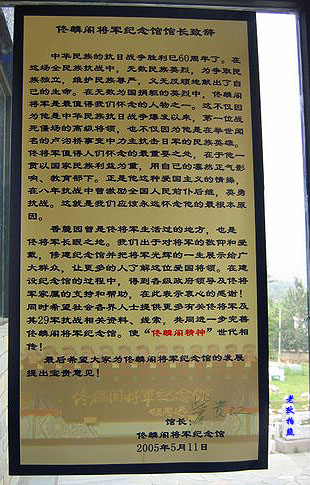 佟麟阁将军纪念馆馆长致辞
中华民族的抗日战争胜利已60周年了。在
这场全民族抗战中，无数民族英烈，为争取民
族独立，维护民族尊严，义无反顾地献出了自
己的生命。在无数为国捐躯的英烈中，佟麟阁
将军是最值得我们怀念的人物之一。这不仅因
为他是中华民族抗日战争爆发以来，第一位战
死疆场的高级将领，也不仅因为他是在举世闻
名的卢沟桥事变中力主抗击日军的民族英雄。
佟将军值得人们怀念的最重要之处，在于他一
贯以国家民族利益为重，用自己的凛然正气影
响、教育部下。正是他这种爱国主义的情操，
在八年抗战中曾激励全国人民前仆后继，英勇
抗战。这就是我们应该永远怀念他的最根本原
因。
香麓园曾是佟将军生活过的地方，也是
佟将军长眠之地。我们出于对将军的敬仰和爱
戴，修建纪念馆并把将军光辉的一生展示给广
大群众，让更多的人了解这位爱国将领。在建
设纪念馆的过程中，得到各级政府领导及佟将
军家属的支持和帮助，在此表示衷心的感谢！
同时希望社会各界人士提供更多有关佟将军及
其29军抗战相关资料、线索，共同进一步完善
佟麟阁将军纪念馆。使“佟麟阁精神”世代相
传！
最后希望大家为佟麟阁将军纪念馆的发展
提出宝贵意见！
馆长：
佟麟阁将军纪念馆
2005年5月11日
佟麟阁将军纪念
老狄拍摄